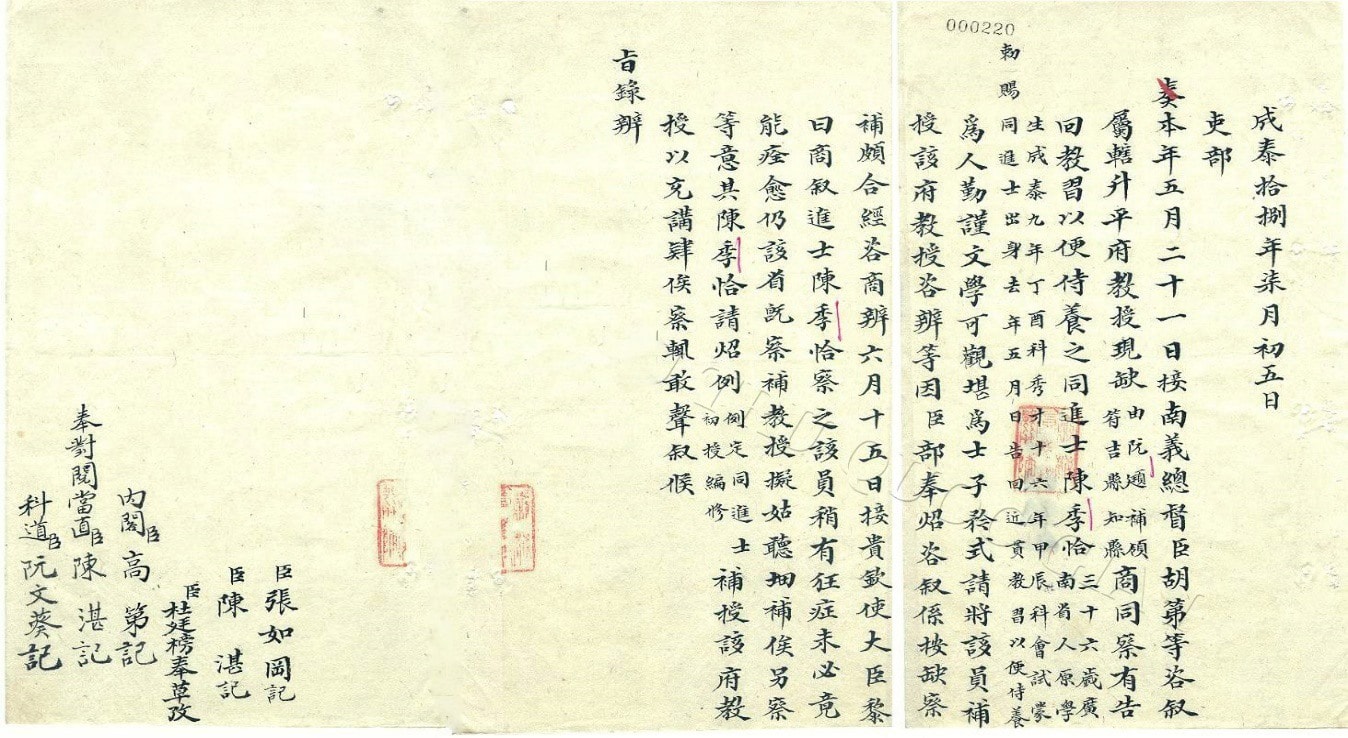 000220
成泰拾捌年柒月初五日
吏部
奏本年五月二十一日接南義總督臣胡第等咨叙
屬轄升平府教授現缺由阮題補領符吉縣知縣商同察有告
回教習以便侍養之同進士陳季恰三十六歲廣南省人原學
生成泰九年丁酉科秀才十六年甲辰科會試蒙
勅賜同進士出身去年五月日告回近貫教習以便侍養
爲人勤謹文學可觀堪爲士子矜式請將該員補
授該府教授咨辨等因臣部奉炤咨叙係按缺察
補頗合經咨商辨六月十五日接貴欽使大臣黎
曰商叙進士陳季恰察之該員稍有狂症未必竟
能痊愈仍該省既察補教授擬姑聽細補俟另察
等意其陳季恰請炤例例定同進士初授編修補授該府教
授以充講肆俟察輒敢聲叙候
旨錄辨
臣張如岡記
臣陳湛記
臣杜廷榜奉草攷
內閣臣高第記
奉對閱當直臣陳湛記
科道臣阮文葵記